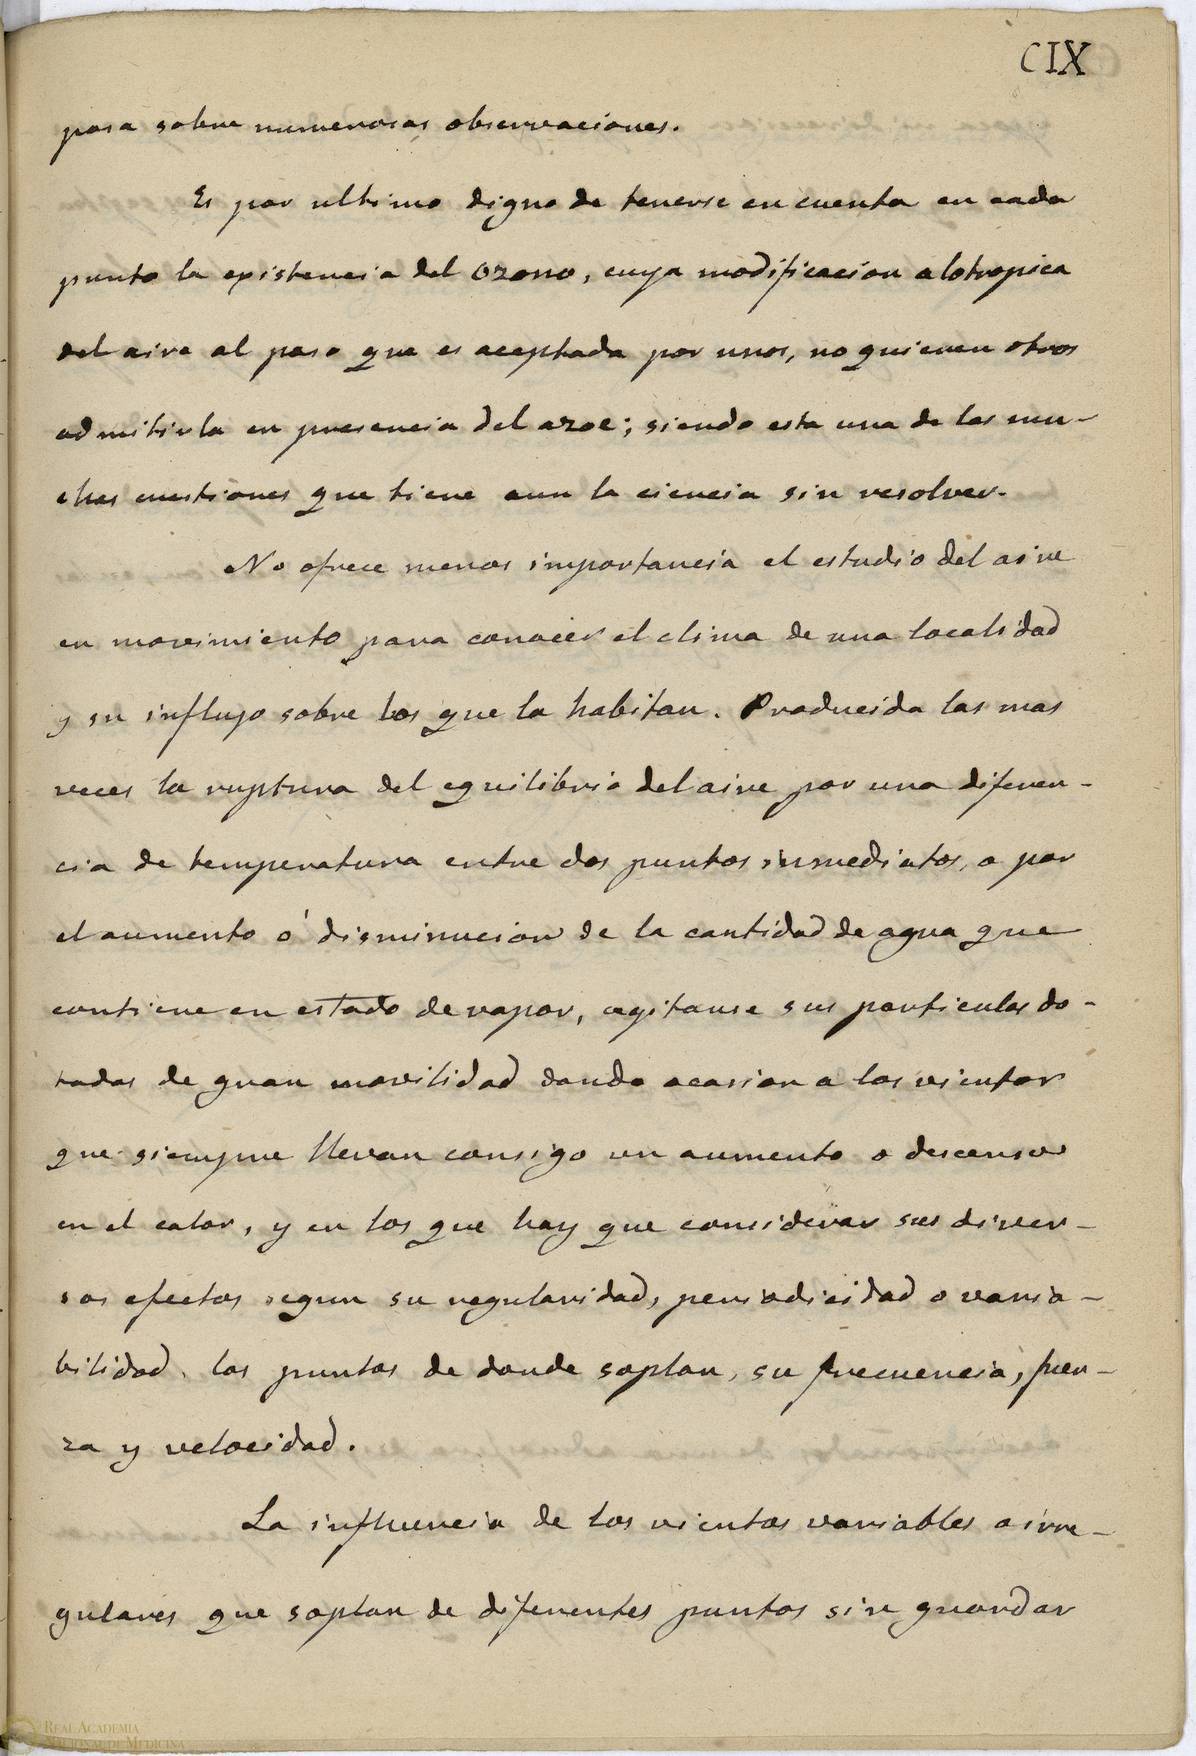 CIX
posa sobre numerosas observaciones.
Es por ultimo digno de tenerse en cuenta en cada
punto la existencia del ozono, cuya modificacion alotropica
del aire al paso que es aceptada por unos, no quieren otros
admitirla en presencia del azoe; siendo esta una de las mu-
chas cuestiones que tiene aun la ciencia sin resolver.
No ofrece menos importancia el estudio del aire
en movimiento para conocer el clima de una localidad
y su influjo sobre los que la habitan. Producida las mas
veces la ruptura del equilibrio del aire por una diferen-
cia de temperatura entre dos puntos inmediatos, o por
el aumento ó disminucion de la cantidad de agua que
contiene en estado de vapor, agitanse sus particulas do-
tadas de gran movilidad dando ocasion a los vientos
que siempre llevan consigo un aumento o descenso
en el calor, y en los que hay que considerar sus diver-
sos efectos segun su regularidad, periodicidad o varia-
bilidad, los puntos de donde soplan, su frecuencia, fuer-
za y velocidad.
La influencia de los vientos variables o irre-
gulares que soplan de diferentes puntos sin guardar
REAL ACADEMIA
NACIONAL DE MEDICINA